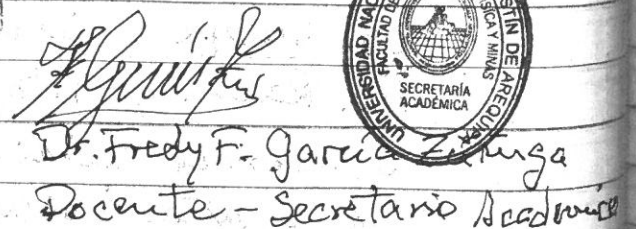 UNIVERSIDAD NAC
STÍN DE AREQUIPA
FACULTAD DE
SICA Y MINAS
SECRETARÍA
ACADÉMICA
Dr. Fredy F. García Zúñiga
Docente - Secretario Académico